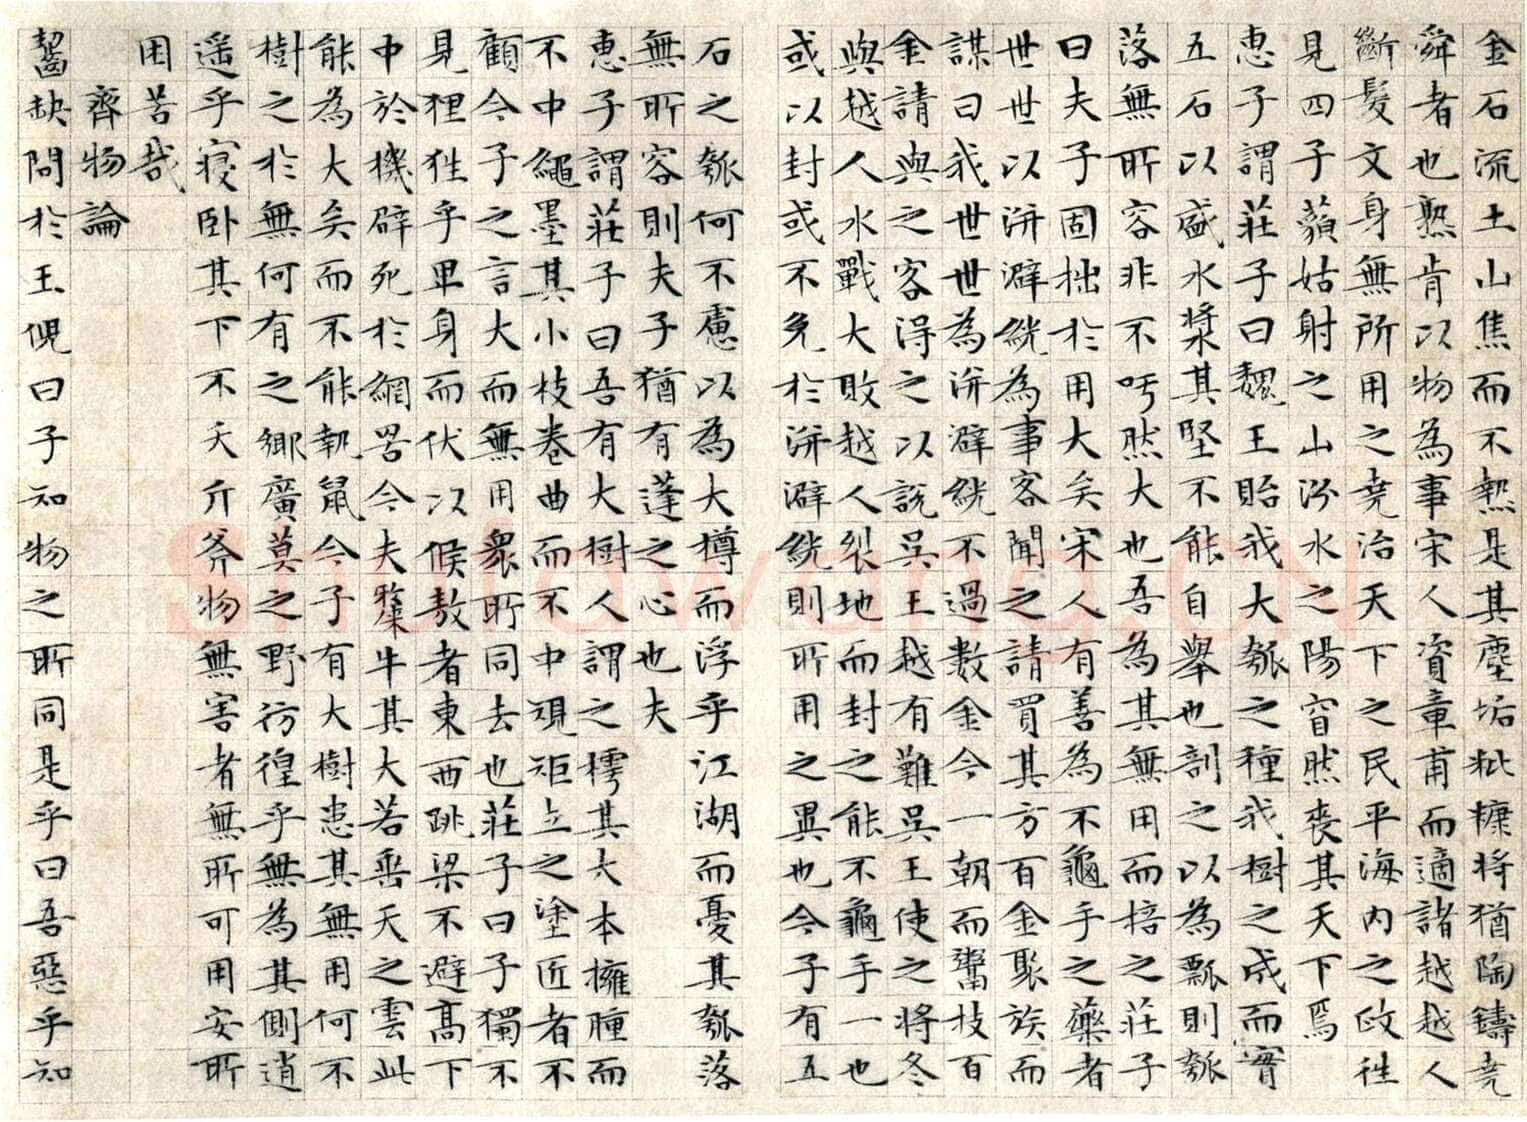 金石流土山焦而不熱是其塵垢粃糠將猶陶鑄堯
舜者也熟肯以物為事宋人資章甫而適諸越越人
斷髮文身無所用之堯治天下之民平海內之政往
見四子藐姑射之山汾水之陽窅然喪其天下焉
惠子謂莊子曰魏王貽我大瓠之種我樹之成而實
五石以盛水漿其堅不能自舉也剖之以為瓢則瓠
落無所容非不呺然大也吾為其無用而掊之莊子
曰夫子固拙於用大矣宋人有善為不龜手之藥者
世世以洴澼絖為事客聞之請買其方百金聚族而
謀曰我世世為洴澼絖不過數金今一朝而鬻技百
金請與之客得之以說吳王越有難吳王使之將冬
與越人水戰大敗越人裂地而封之能不龜手一也
或以封或不免於洴澼絖則所用之異也今子有五
石之瓠何不慮以為大樽而浮乎江湖而憂其瓠落
無所容則夫子猶有蓬之心也夫
惠子謂莊子曰吾有大樹人謂之樗其大本擁腫而
不中繩墨其小枝卷曲而不中規矩立之塗匠者不
顧今子之言大而無用眾所同去也莊子曰子獨不
見狸狌乎卑身而伏以候敖者東西跳梁不避高下
中於機辟死於網罟今夫斄牛其大若垂天之雲此
能為大矣而不能執鼠今子有大樹患其無用何不
樹之於無何有之鄉廣莫之野彷徨乎無為其側逍
遥乎寢卧其下不夭斤斧物無害者無所可用安所
困苦哉
齊物論
齧缺問於王倪曰子知物之所同是乎曰吾惡乎知
shufawang.CN